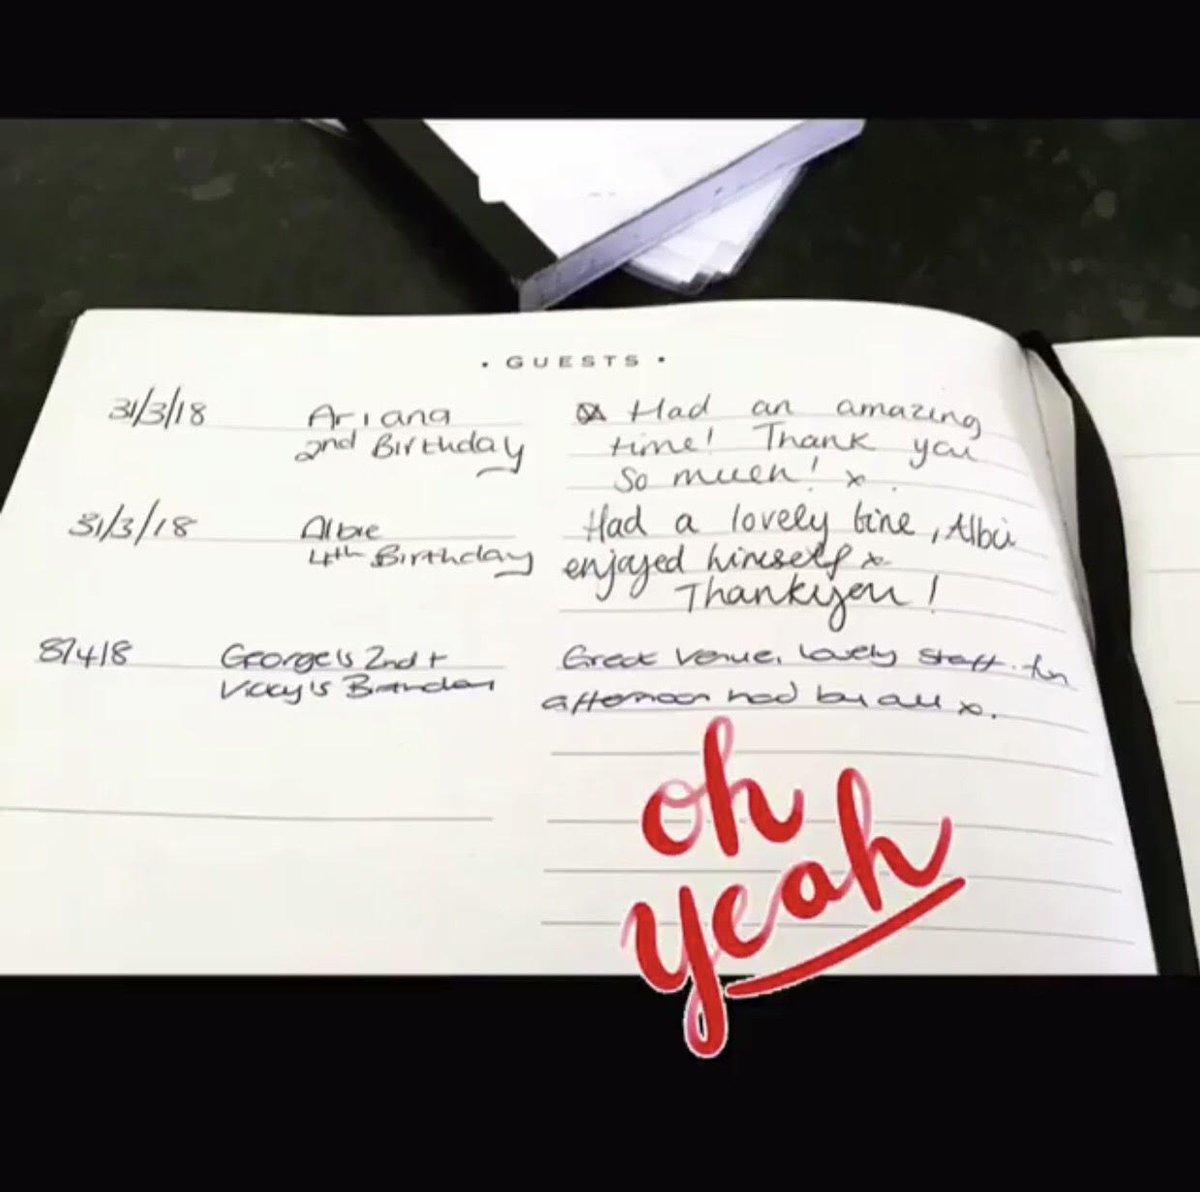 • GUESTS •
31/3/18 Ariana Had an amazing
2nd Birthday time! Thank you
so much! x
31/3/18 Albie Had a lovely time, Albie
4th Birthday enjoyed himself x
Thankyou!
8/4/18 George's 2nd + Great venue, lovely staff. fun
Vicky's Birthday afternoon had by all x.
oh
yeah